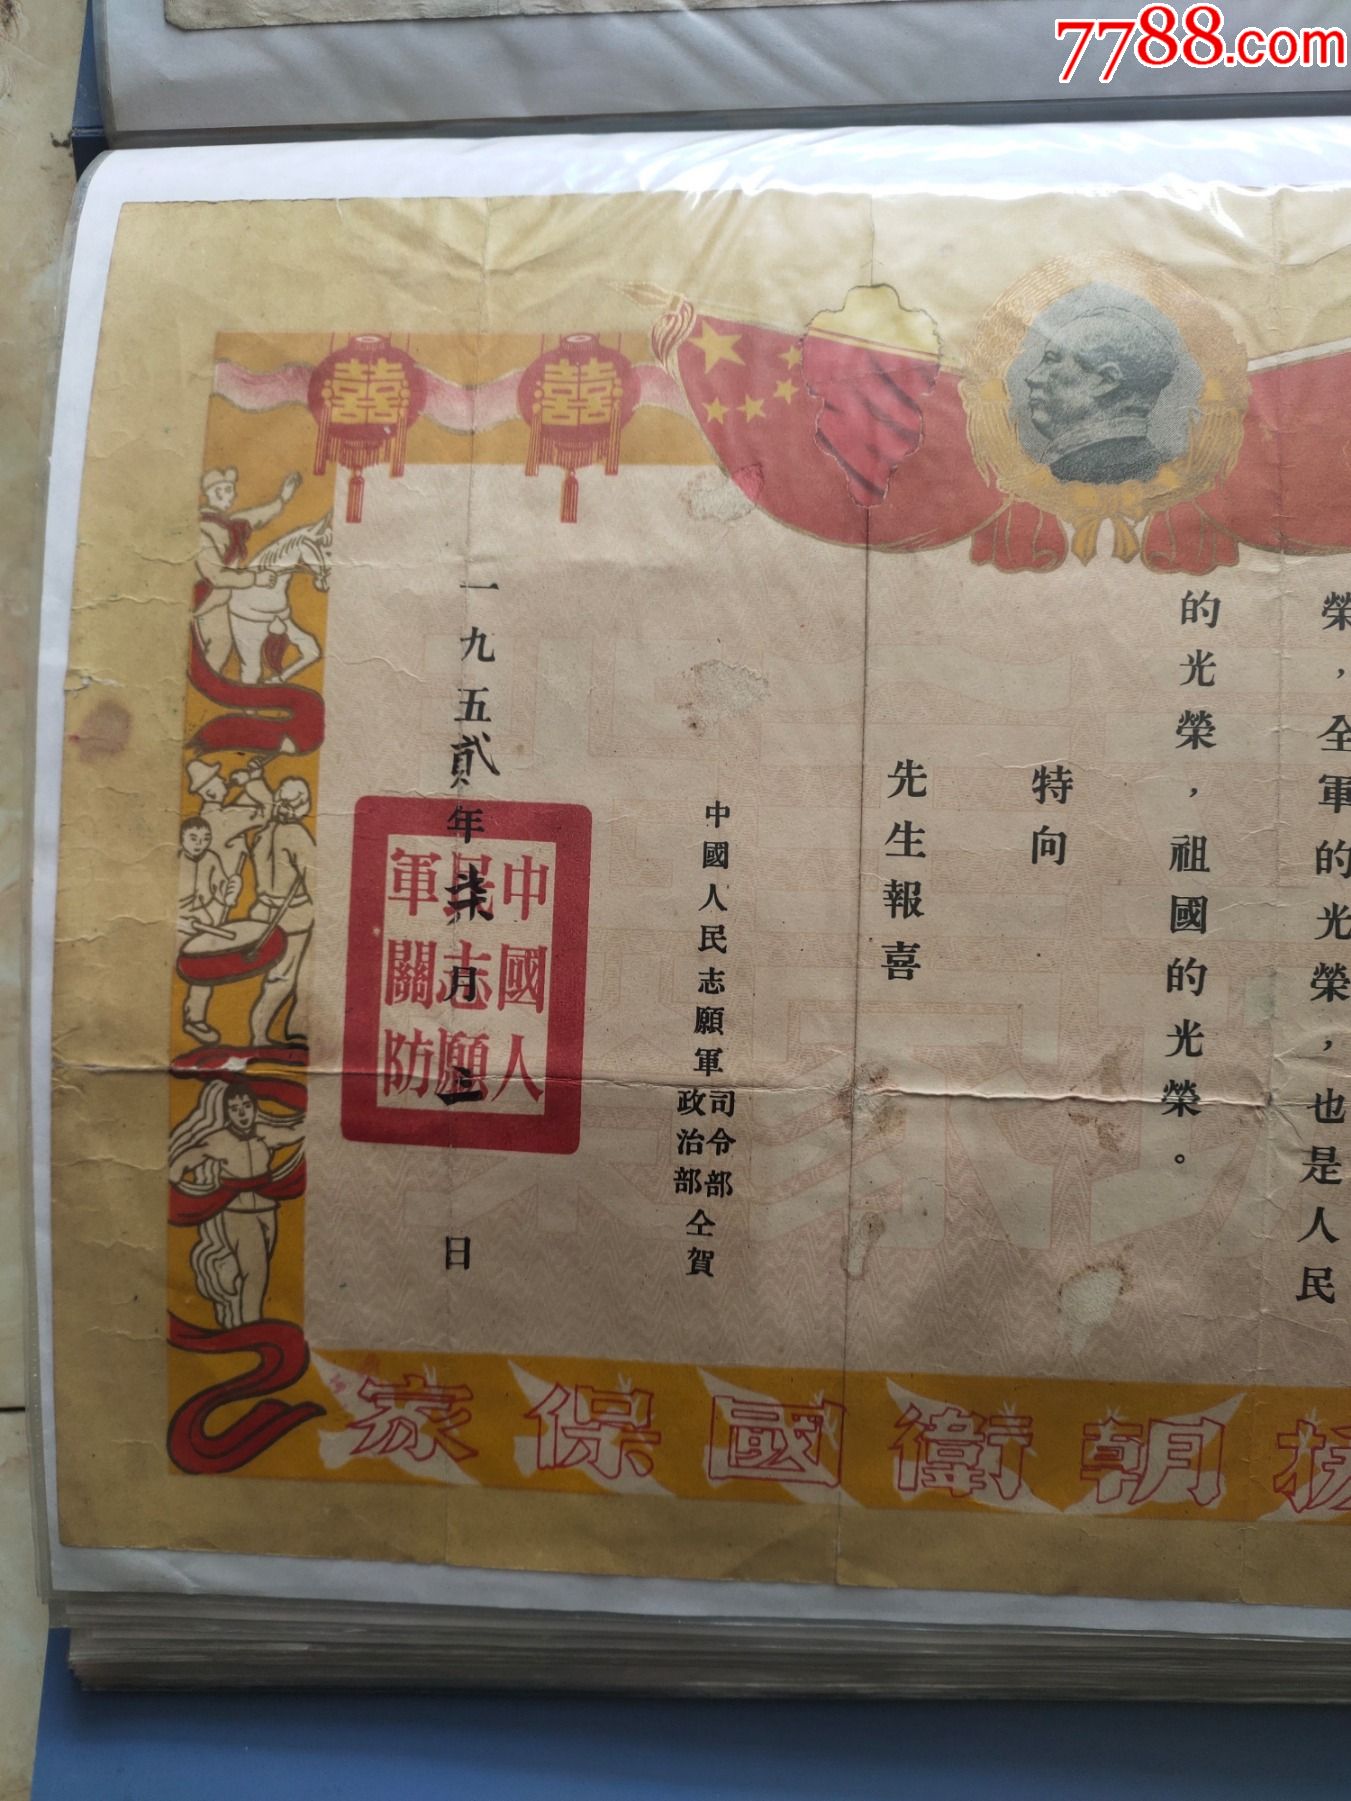 7788.com
榮，全軍的光榮，也是人民
的光榮，祖國的光榮。
特向
先生報喜
中國人民志願軍司令部
政治部仝賀
一九五貳年柒月三日
中國人民志願軍關防
囍
囍
朝衛國保家